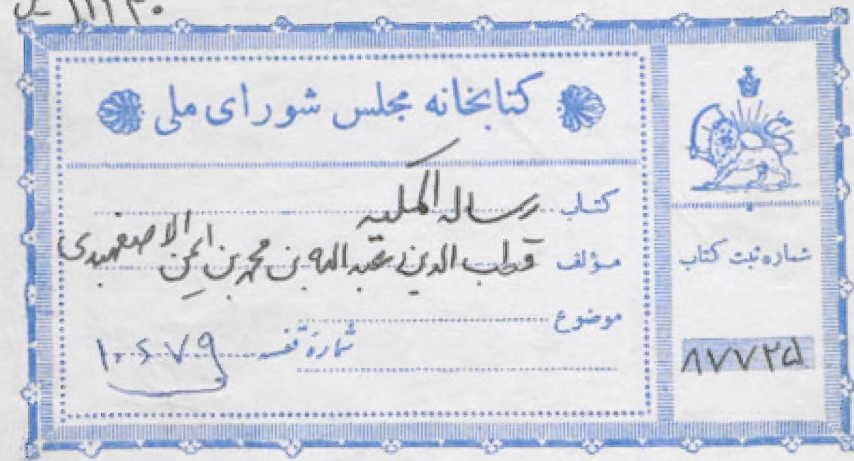 ۱۱۱۳۰
کتابخانه مجلس شورای ملی
کتاب رساله المکیه
مؤلف قطب الدین عبدالله بن محمد بن ایمن الاصفهبدی
موضوع
شماره قفسه ۱۰۶۷۹
شماره ثبت کتاب
۸۷۷۲۵